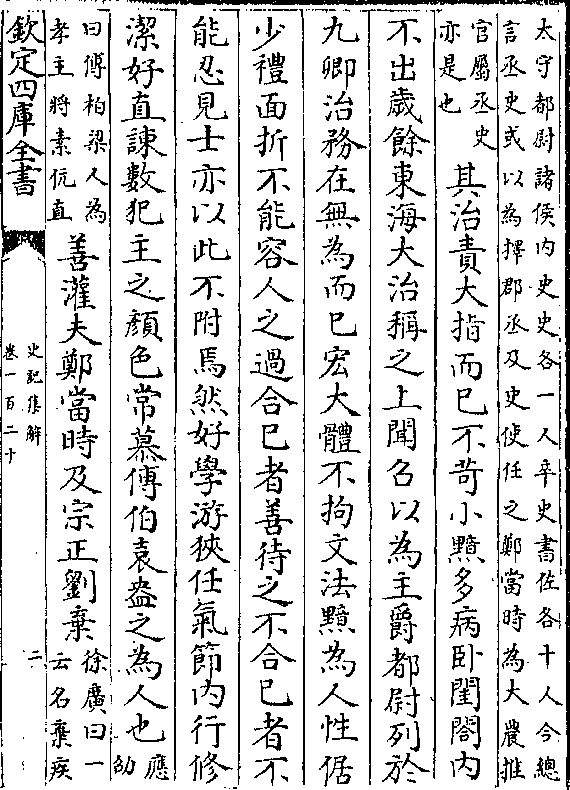 太守都尉諸侯内史史各一人卒史書佐各十人今總
言丞史或以為擇郡丞及史使任之鄭當時為大農推
官屬丞史
亦是也
其治責大指而已不苛小黯多病卧閨閤内
不出歲餘東海大治稱之上聞召以為主爵都尉列於
九卿治務在無為而已宏大體不拘文法黯為人性倨
少禮面折不能容人之過合已者善待之不合已者不
能忍見士亦以此不附焉然好學游狹任氣節内行修
潔好直諫數犯主之顏色常慕傅伯袁盎之為人也
應劭
曰傅柏梁人為
孝王將素伉直
善灌夫鄭當時及宗正劉棄
徐廣曰一
云名棄疾
欽定四庫全書
史記集解
卷一百二十
二